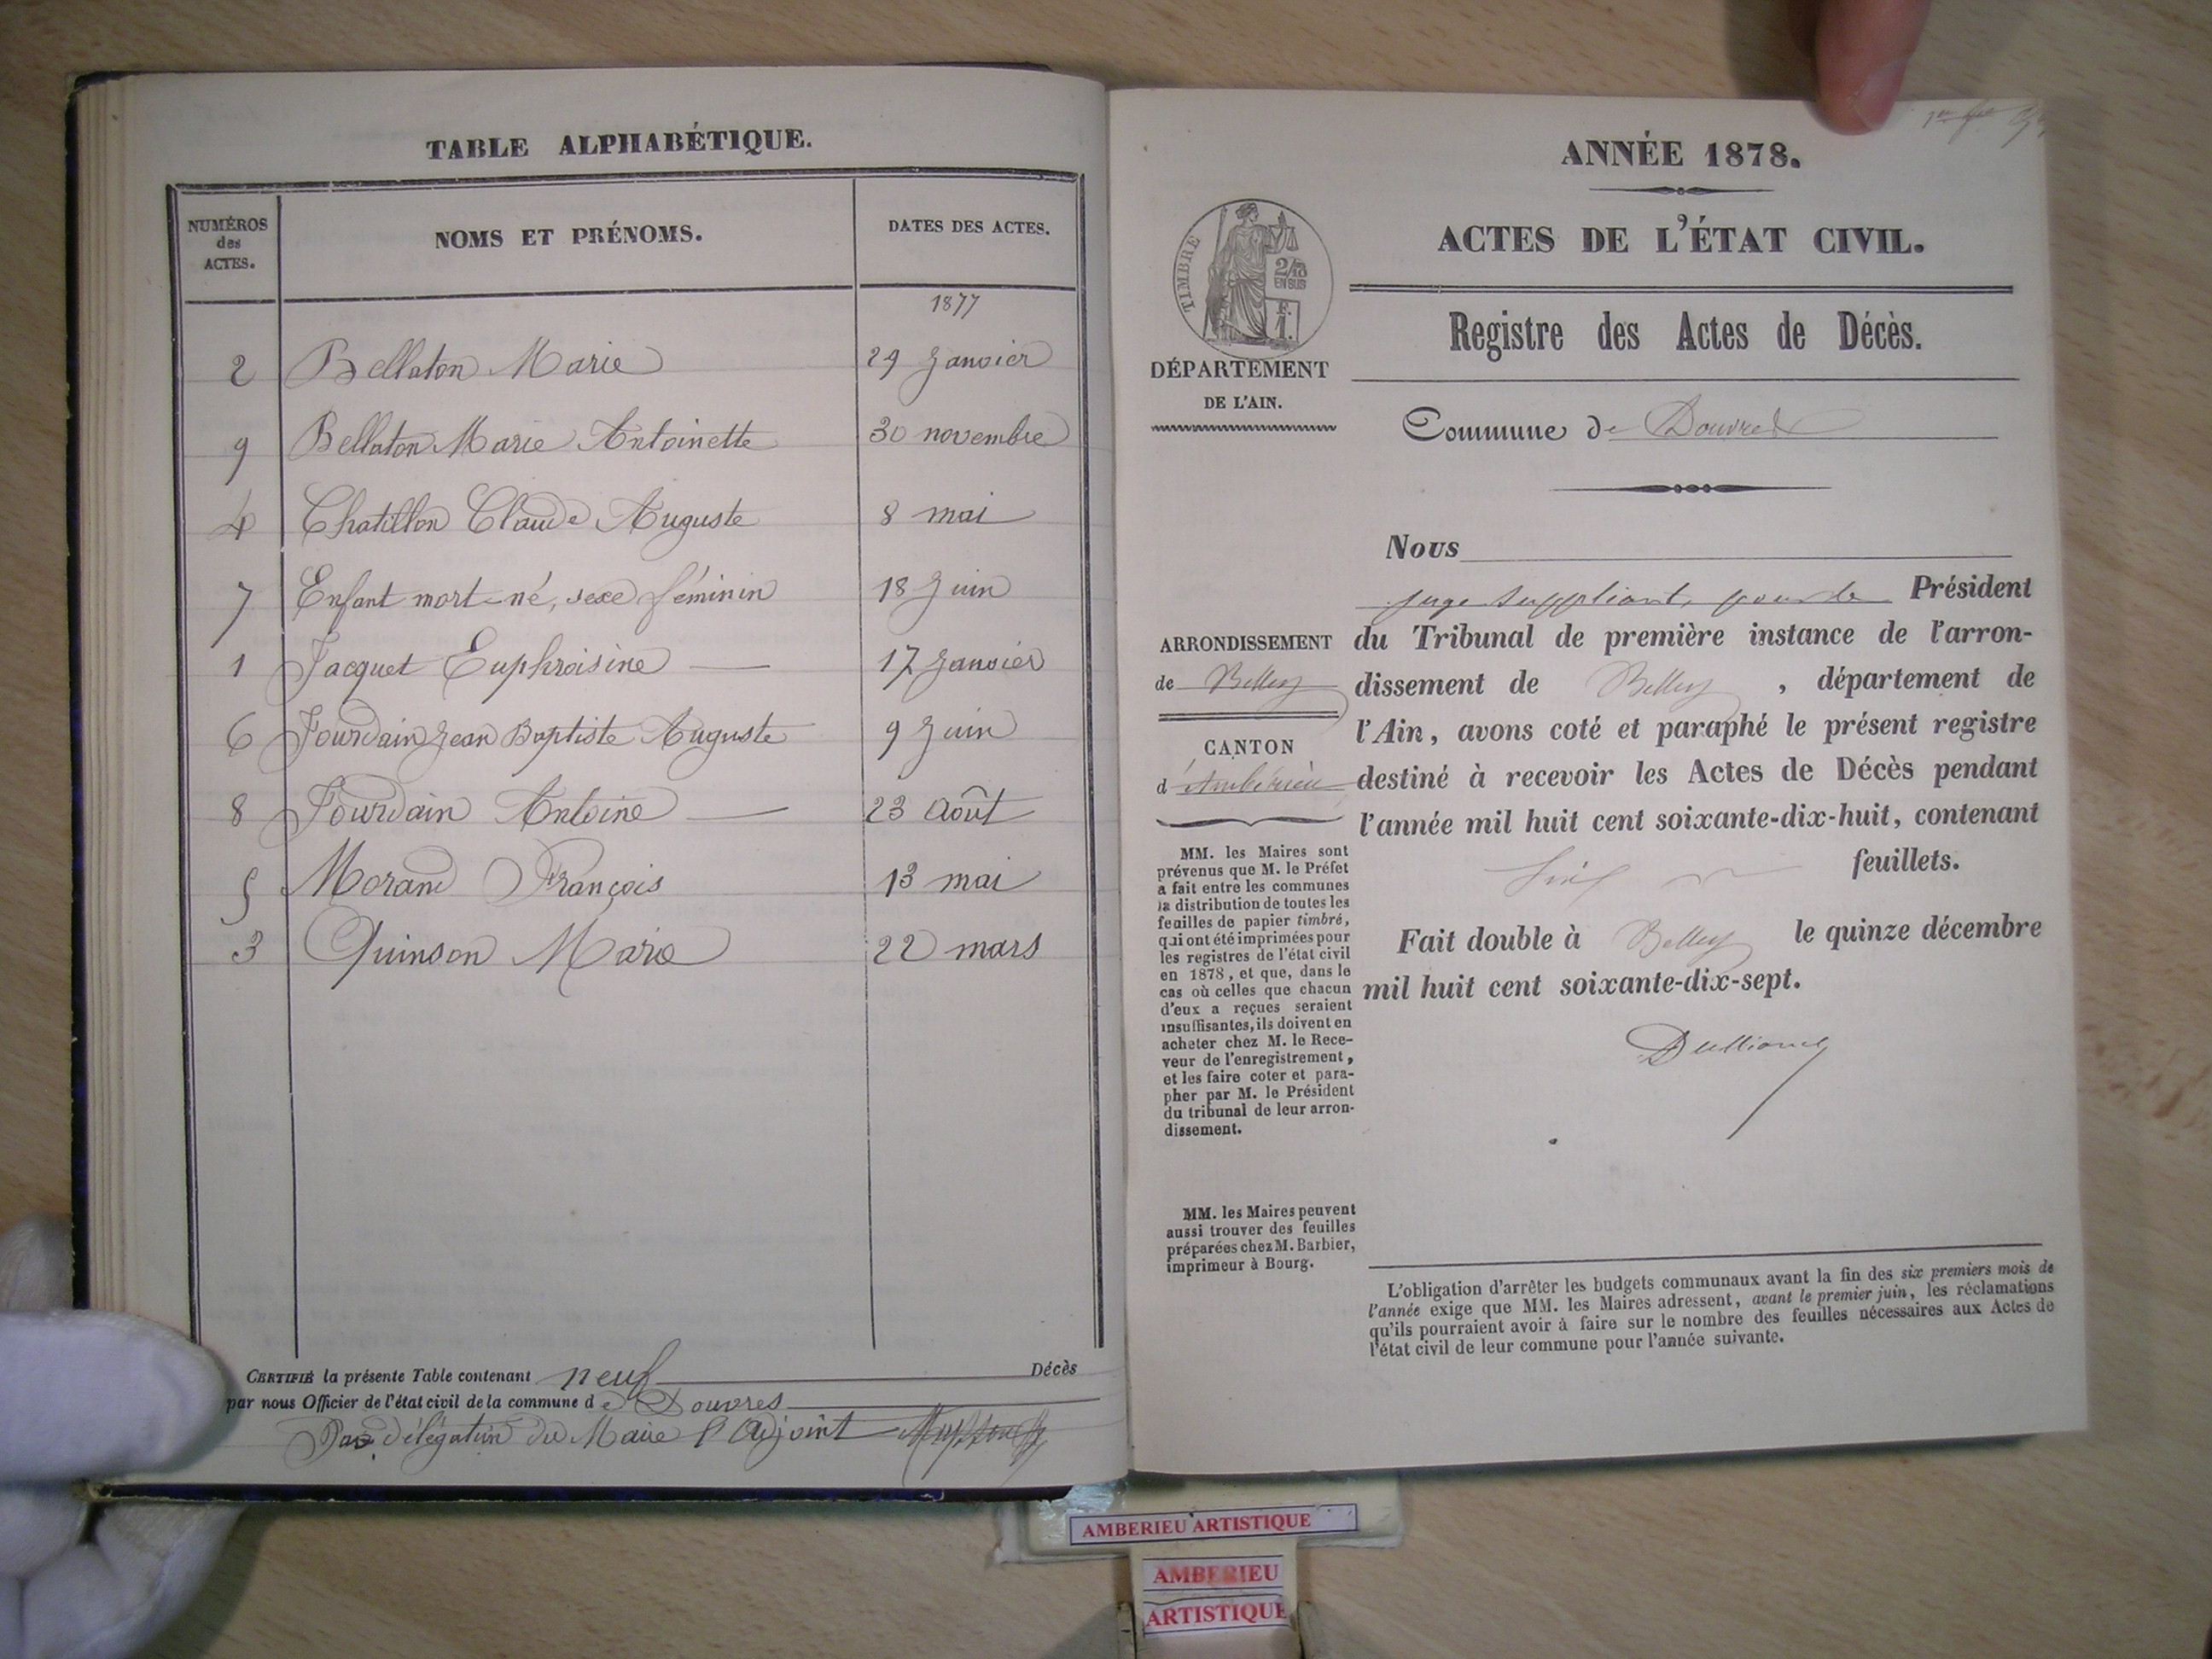 TABLE ALPHABÉTIQUE.
NUMÉROS
des
ACTES.
NOMS ET PRÉNOMS.
DATES DES ACTES.
1877
2 Bellaton Marie 29 Janvier
9 Bellaton Marie Antoinette 30 novembre
4 Chatillon Claude Auguste 8 mai
7 Enfant mort-né, sexe féminin 18 Juin
1 Jacquet Euphroisine — 17 Janvier
6 Jourdain Jean Baptiste Auguste 9 Juin
8 Jourdain Antoine — 23 Août
5 Morand François 13 mai
3 Quinson Marie 22 mars
CERTIFIÉ la présente Table contenant neuf Décès
par nous Officier de l'état civil de la commune de Douvres
Par délégation du Maire l'Adjoint
ANNÉE 1878.
ACTES DE L'ÉTAT CIVIL.
TIMBRE
2/10
EN SUS
F.
1.
Registre des Actes de Décès.
DÉPARTEMENT
DE L'AIN.
Commune de Douvres
Nous
juge suppléant, pour le Président
du Tribunal de première instance de l'arron-
dissement de Belley, département de
l'Ain, avons coté et paraphé le présent registre
destiné à recevoir les Actes de Décès pendant
l'année mil huit cent soixante-dix-huit, contenant
feuillets.
Fait double à Belley le quinze décembre
mil huit cent soixante-dix-sept.
ARRONDISSEMENT
de Belley
CANTON
d'Ambérieu
MM. les Maires sont
prévenus que M. le Préfet
a fait entre les communes
la distribution de toutes les
feuilles de papier timbré,
qui ont été imprimées pour
les registres de l'état civil
en 1878, et que, dans le
cas où celles que chacun
d'eux a reçues seraient
insuffisantes, ils doivent en
acheter chez M. le Rece-
veur de l'enregistrement,
et les faire coter et para-
pher par M. le Président
du tribunal de leur arron-
dissement.
MM. les Maires peuvent
aussi trouver des feuilles
préparées chez M. Barbier,
imprimeur à Bourg.
L'obligation d'arrêter les budgets communaux avant la fin des six premiers mois de
l'année exige que MM. les Maires adressent, avant le premier juin, les réclamations
qu'ils pourraient avoir à faire sur le nombre des feuilles nécessaires aux Actes de
l'état civil de leur commune pour l'année suivante.
AMBERIEU ARTISTIQUE
AMBERIEU
ARTISTIQUE